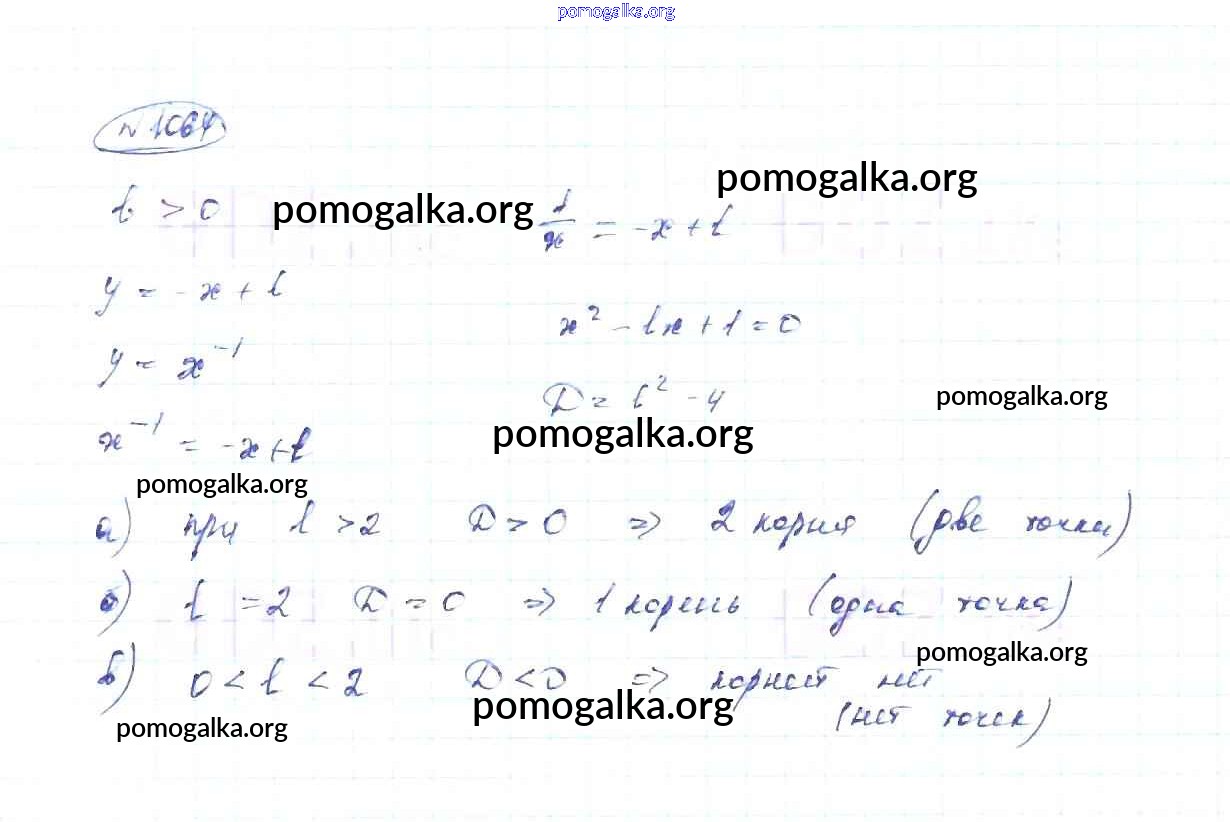 pomogalka.org
№ 1064
pomogalka.org
b > 0
pomogalka.org
1/x = -x + b
y = -x + b
x² - bx + 1 = 0
y = x⁻¹
D = b² - 4
pomogalka.org
x⁻¹ = -x + b
pomogalka.org
pomogalka.org
а) при b > 2 D > 0 => 2 корня (две точки)
б) b = 2 D = 0 => 1 корень (одна точка)
pomogalka.org
в) 0 < b < 2 D < 0 => корней нет
(нет точек)
pomogalka.org
pomogalka.org